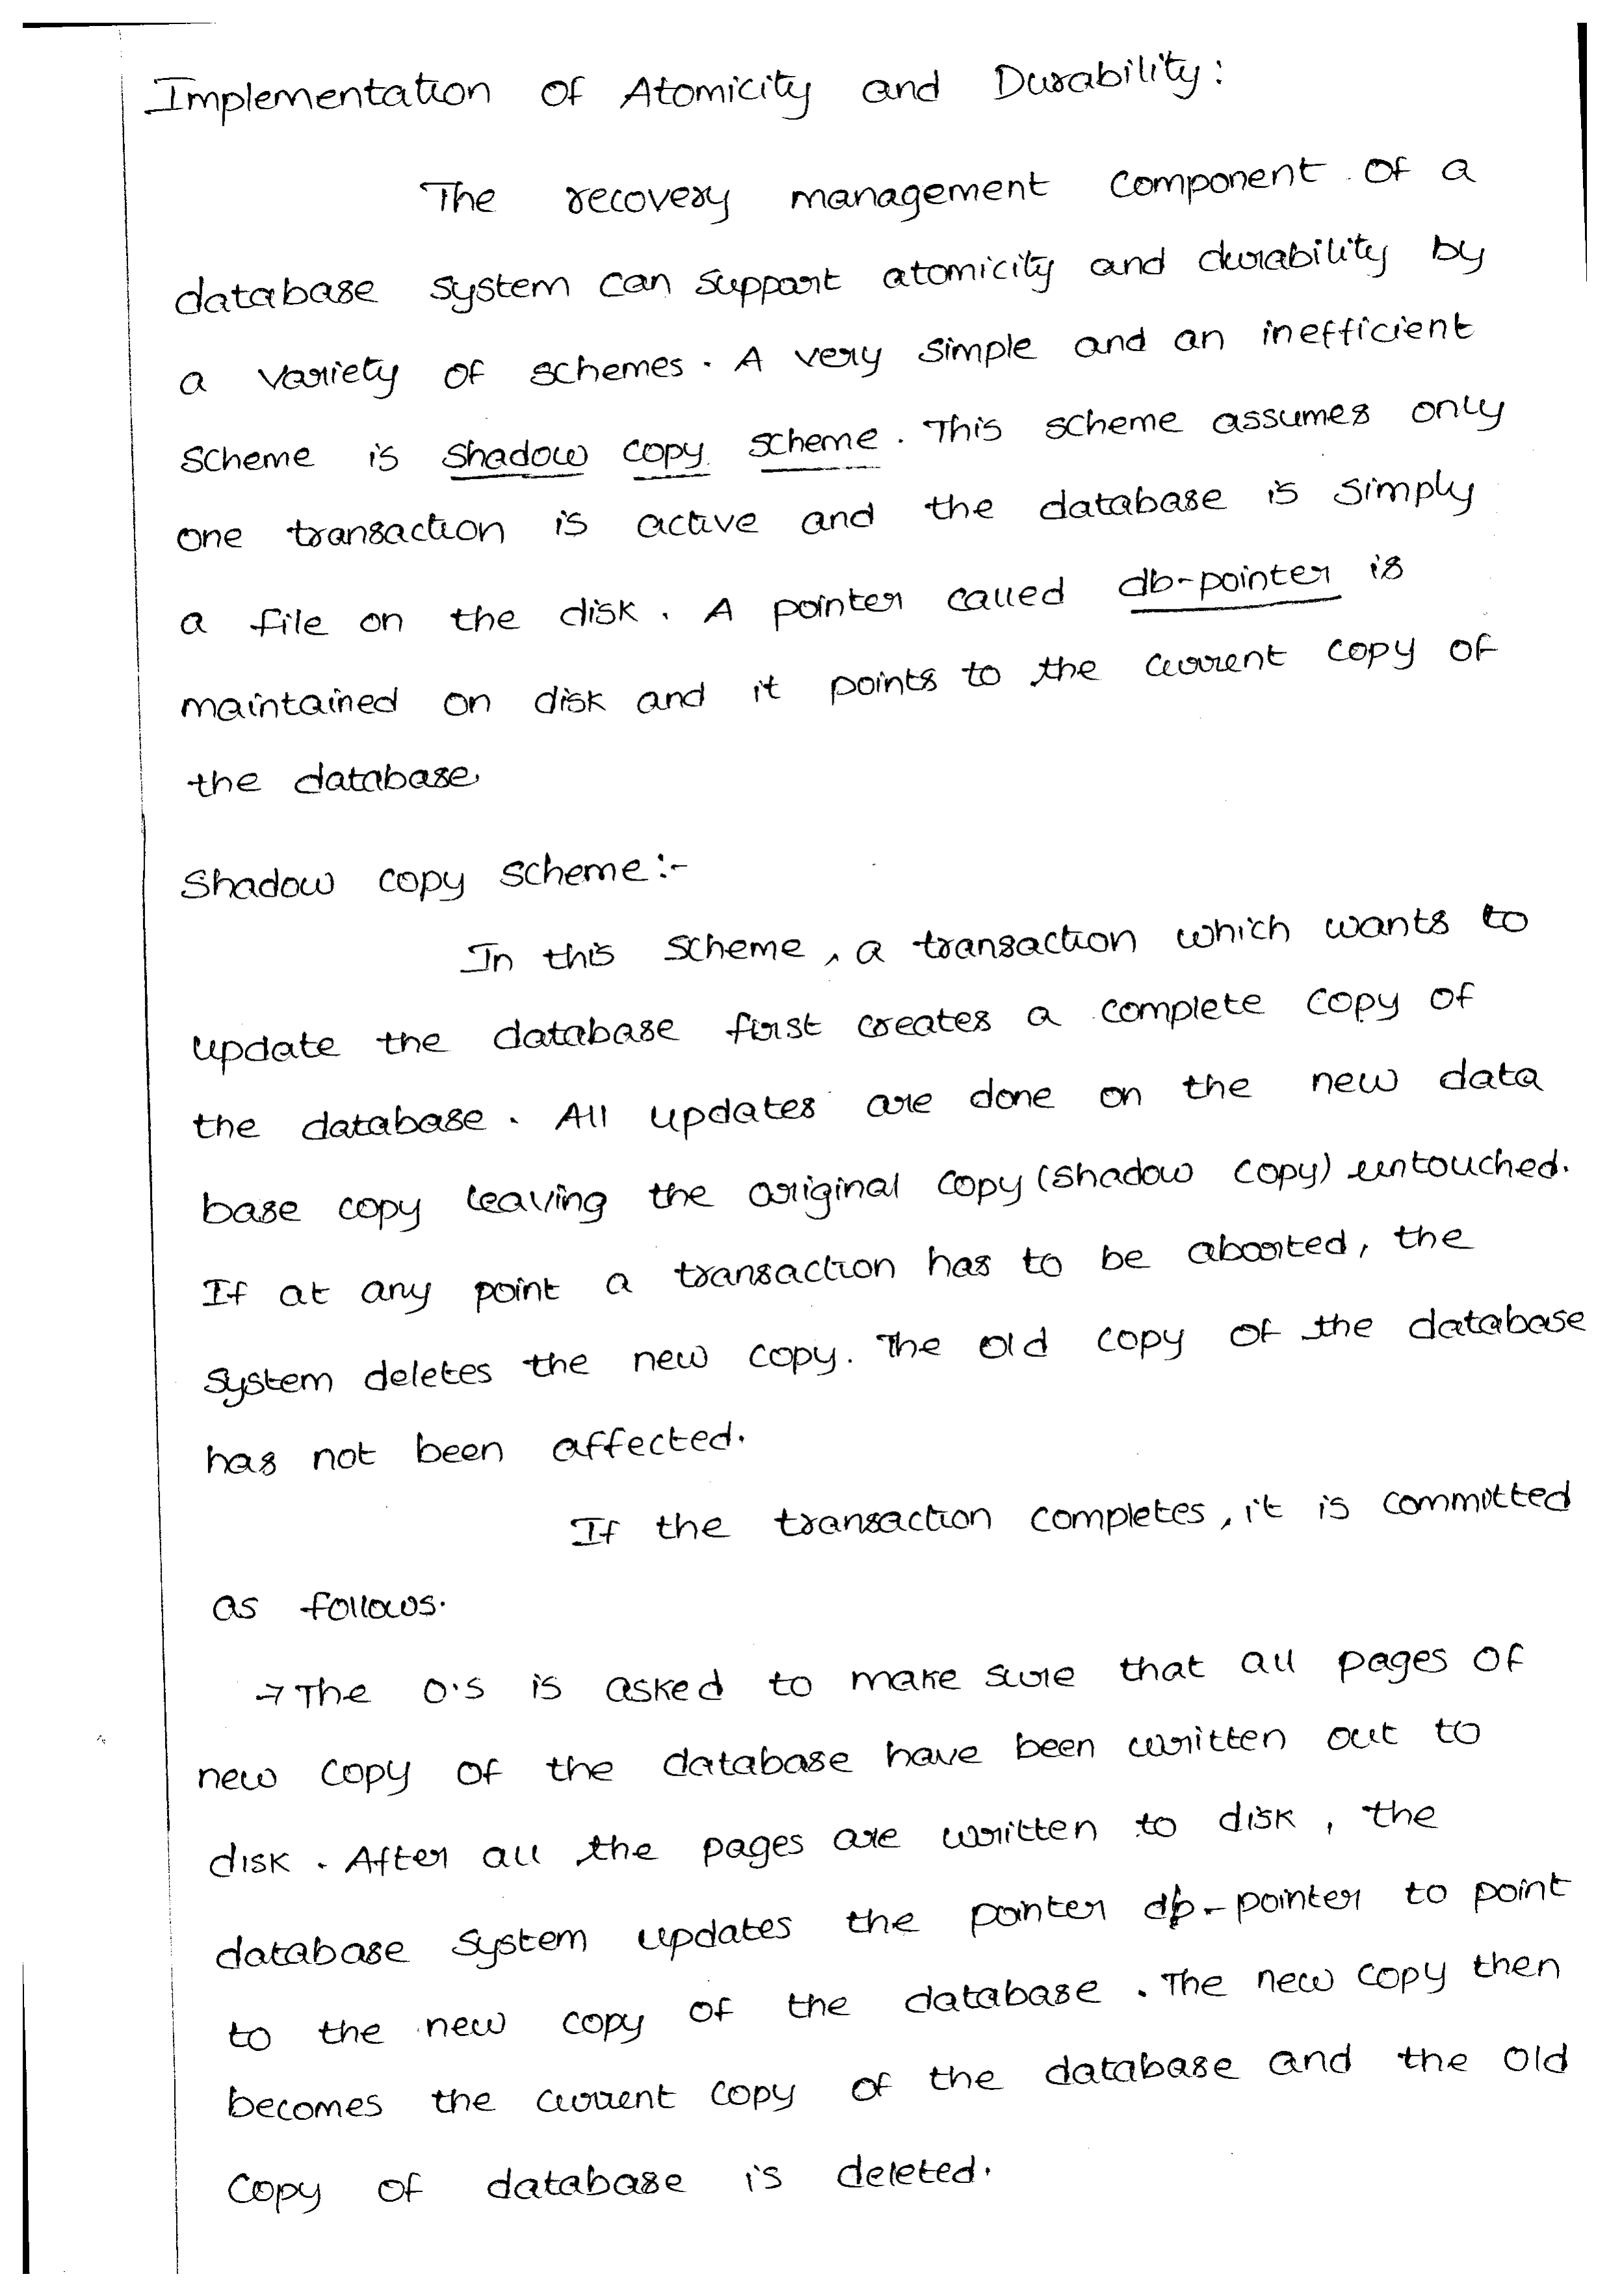 Implementation of Atomicity and Durability:
The recovery management component of a
database system can support atomicity and durability by
a variety of schemes. A very simple and an inefficient
scheme is shadow copy scheme. This scheme assumes only
one transaction is active and the database is simply
a file on the disk. A pointer called db-pointer is
maintained on disk and it points to the current copy of
the database.
Shadow copy scheme:-
In this scheme, a transaction which wants to
update the database first creates a complete copy of
the database. All updates are done on the new data
base copy leaving the original copy (shadow copy) untouched.
If at any point a transaction has to be aborted, the
system deletes the new copy. The old copy of the database
has not been affected.
If the transaction completes, it is committed
as follows.
→ The O.S is asked to make sure that all pages of
new copy of the database have been written out to
disk. After all the pages are written to disk, the
database system updates the pointer db-pointer to point
to the new copy of the database. The new copy then
becomes the current copy of the database and the old
copy of database is deleted.